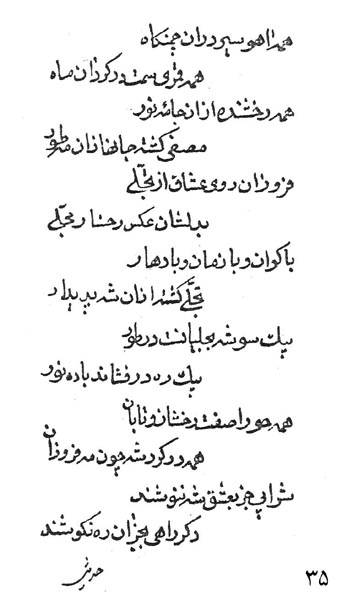 همه آهو سیر در آن چمنگاه
همه قمری صفت در گردان ماه
همه رخشنده از آن جامه نور
مصفی گشته جانها زان مه طور
فروزان روی عشاق از تجلی
بدلشان عکس رخسار مجلی
با کوان و با زمان و بادهار
تجلی گشته زانان شد پدیدار
بیک سو شد بجلبانت در طور
بیک ره در فشاند باده نور
همه حورا صفت رخشان و تابان
همه در گرد شه چون مه فروزان
شرابی جز بعشق شه ننوشند
دگر راهی بجز آن ره نکوشند
۳۵